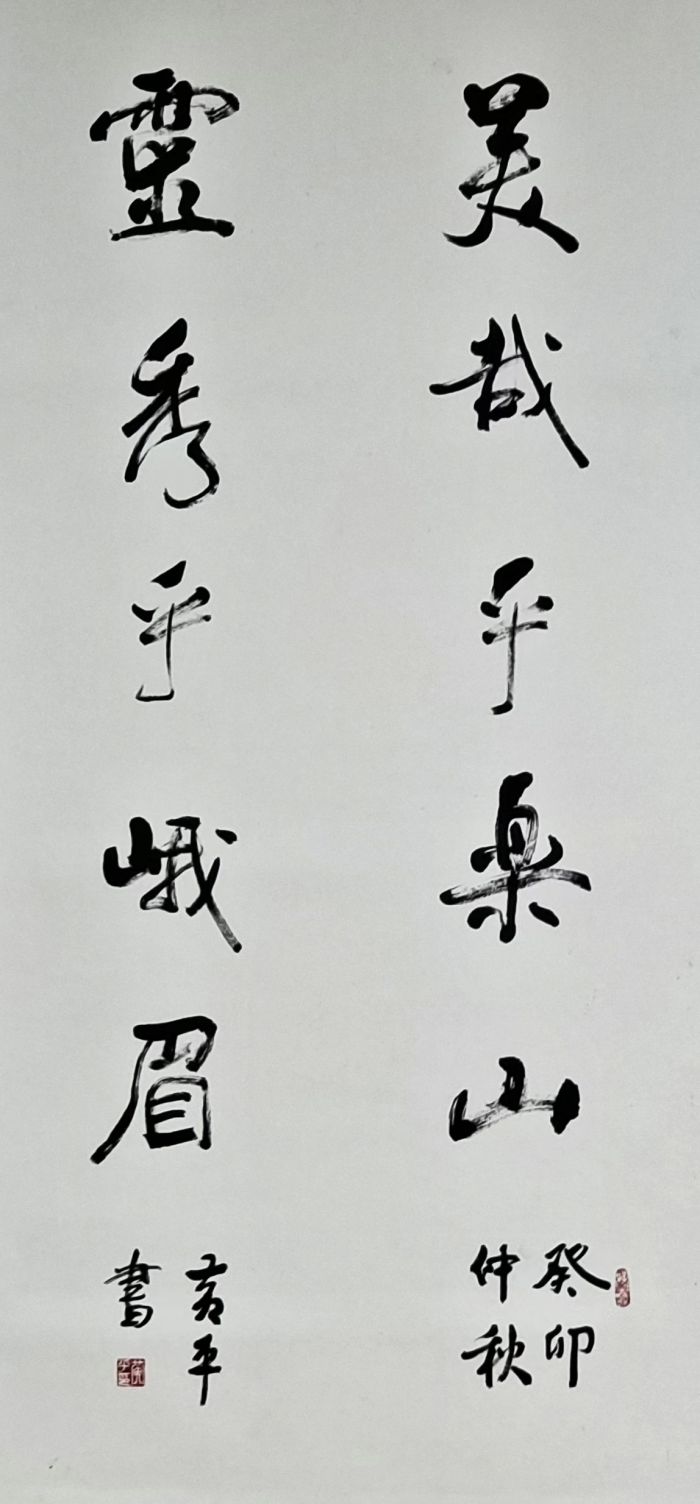 美哉乎樂山
癸卯
仲秋
靈秀乎峨眉
黄平
書